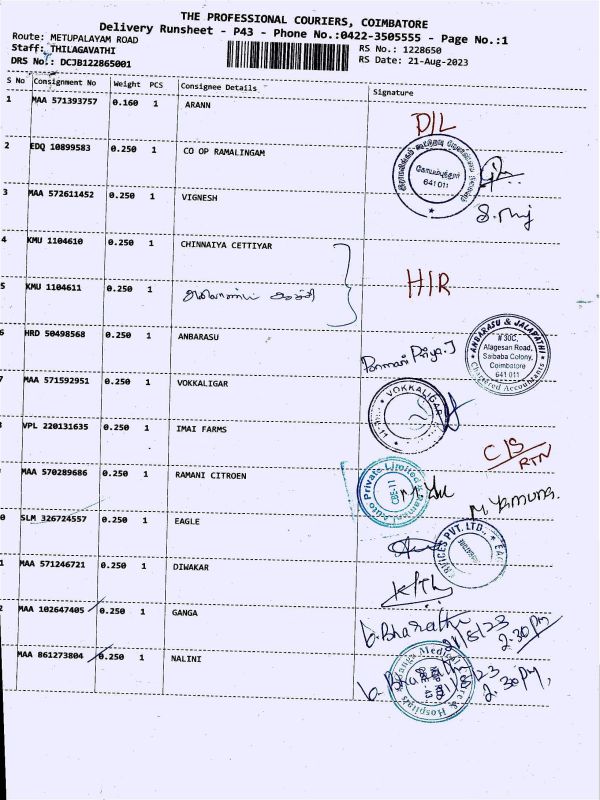 THE PROFESSIONAL COURIERS, COIMBATORE
Delivery Runsheet - P43 - Phone No.:0422-3505555 - Page No.:1
Route: METUPALAYAM ROAD
RS No.: 1228650
Staff: THILAGAVATHI
RS Date: 21-Aug-2023
DRS No.: DCJB122865001
S No Consignment No Weight PCS Consignee Details Signature
1 MAA 571393757 0.160 1 ARANN
D/L
2 EDQ 10899583 0.250 1 CO OP RAMALINGAM
கோயம்புத்தூர்
641 011
3 MAA 572611452 0.250 1 VIGNESH
4 KMU 1104610 0.250 1 CHINNAIYA CETTIYAR
H/R
5 KMU 1104611 0.250 1
6 HRD 50498568 0.250 1 ANBARASU
Ponmani Priya.J
ANBARASU & JALAPATHI
Alagesan Road,
Saibaba Colony,
Coimbatore
641 011
Chartered Accountants
7 MAA 571592951 0.250 1 VOKKALIGAR
VOKKALIGAR
VPL 220131635 0.250 1 IMAI FARMS
C/S
RTN
MAA 570289686 0.250 1 RAMANI CITROEN
Auto Private Limited
CBE-11
M. Yamuna.
0 SLM 326724557 0.250 1 EAGLE
SERVICES PVT. LTD.,
1 MAA 571246721 0.250 1 DIWAKAR
2 MAA 102647405 0.250 1 GANGA
G. Bharathi
21/8/23
2.30 PM
MAA 861273804 0.250 1 NALINI
Ganga Medical Centre & Hospitals
2.30 PM,